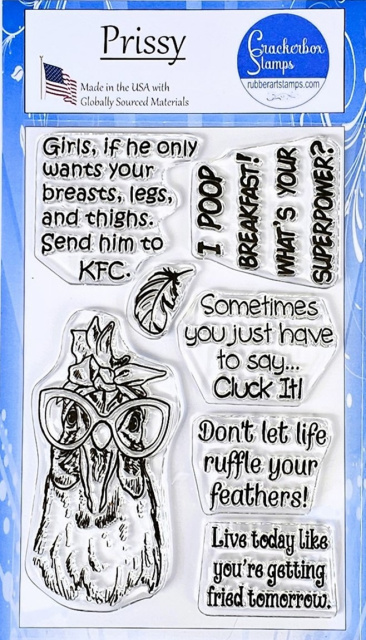 Prissy
Crackerbox
Stamps
rubberartstamps.com
Made in the USA with
Globally Sourced Materials
Girls, if he only
wants your
breasts, legs,
and thighs.
Send him to
KFC.
I POOP
BREAKFAST!
WHAT'S YOUR
SUPERPOWER?
Sometimes
you just have
to say...
Cluck It!
Don't let life
ruffle your
feathers!
Live today like
you're getting
fried tomorrow.